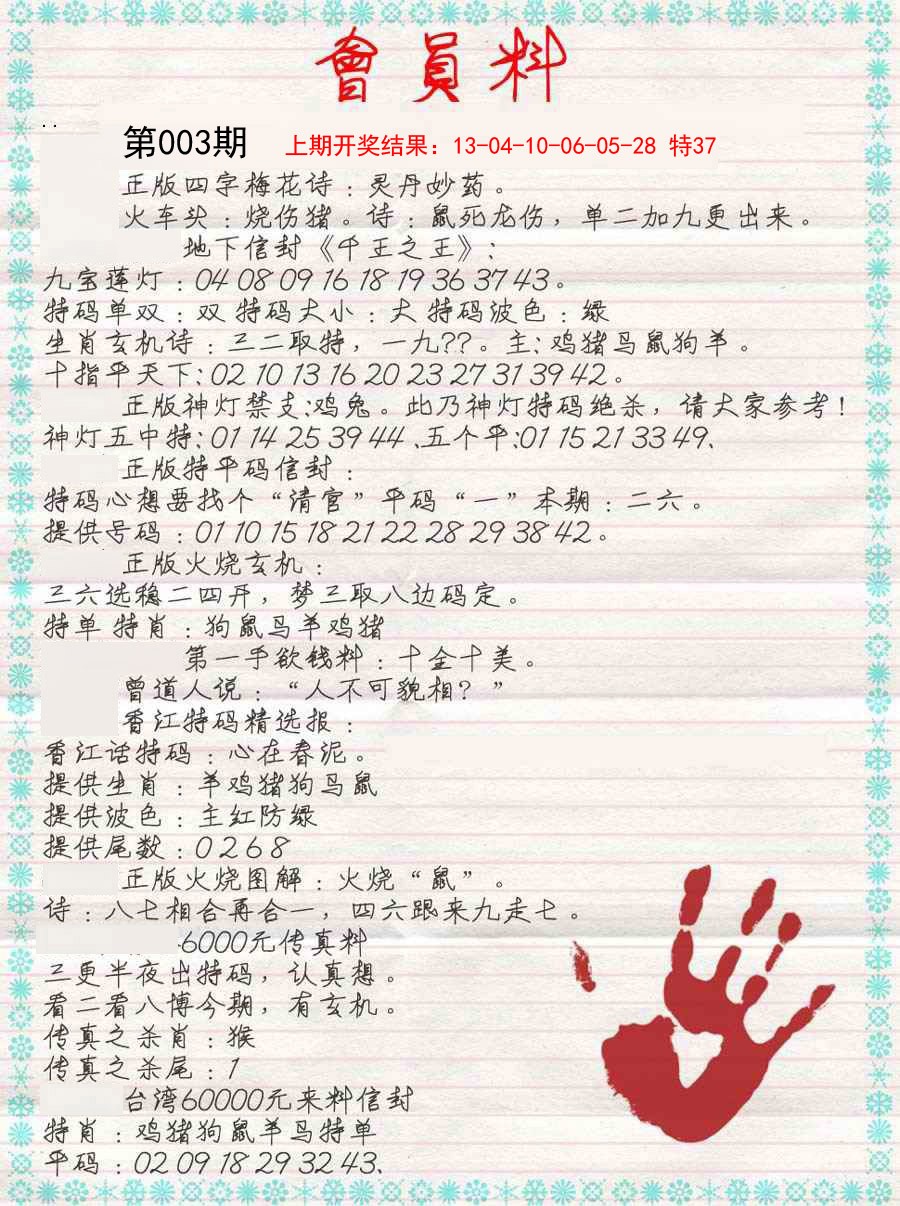 會員料
第003期 上期开奖结果：13-04-10-06-05-28 特37
正版四字梅花诗：灵丹妙药。
火车头：烧伤猪。诗：鼠死龙伤，单二加九更出来。
地下信封《千王之王》：
九宝莲灯：04 08 09 16 18 19 36 37 43。
特码单双：双 特码大小：大 特码波色：绿
生肖玄机诗：三二取特，一九??。主：鸡猪马鼠狗羊。
十指平天下：02 10 13 16 20 23 27 31 39 42。
正版神灯禁支：鸡兔。此乃神灯特码绝杀，请大家参考！
神灯五中特：01 14 25 39 44、五个平：01 15 21 33 49、
正版特平码信封：
特码心想要找个“清官”平码“一”本期：二六。
提供号码：01 10 15 18 21 22 28 29 38 42。
正版火烧玄机：
三六选稳二四开，梦三取八边码定。
特单 特肖：狗鼠马羊鸡猪
第一手欲钱料：十全十美。
曾道人说：“人不可貌相？”
香江特码精选报：
香江话特码：心在春泥。
提供生肖：羊鸡猪狗马鼠
提供波色：主红防绿
提供尾数：0 2 6 8
正版火烧图解：火烧“鼠”。
诗：八七相合再合一，四六跟来九走七。
6000元传真料
三更半夜出特码，认真想。
看二看八博今期，有玄机。
传真之杀肖：猴
传真之杀尾：1
台湾60000元来料信封
特肖：鸡猪狗鼠羊马特单
平码：02 09 18 29 32 43、